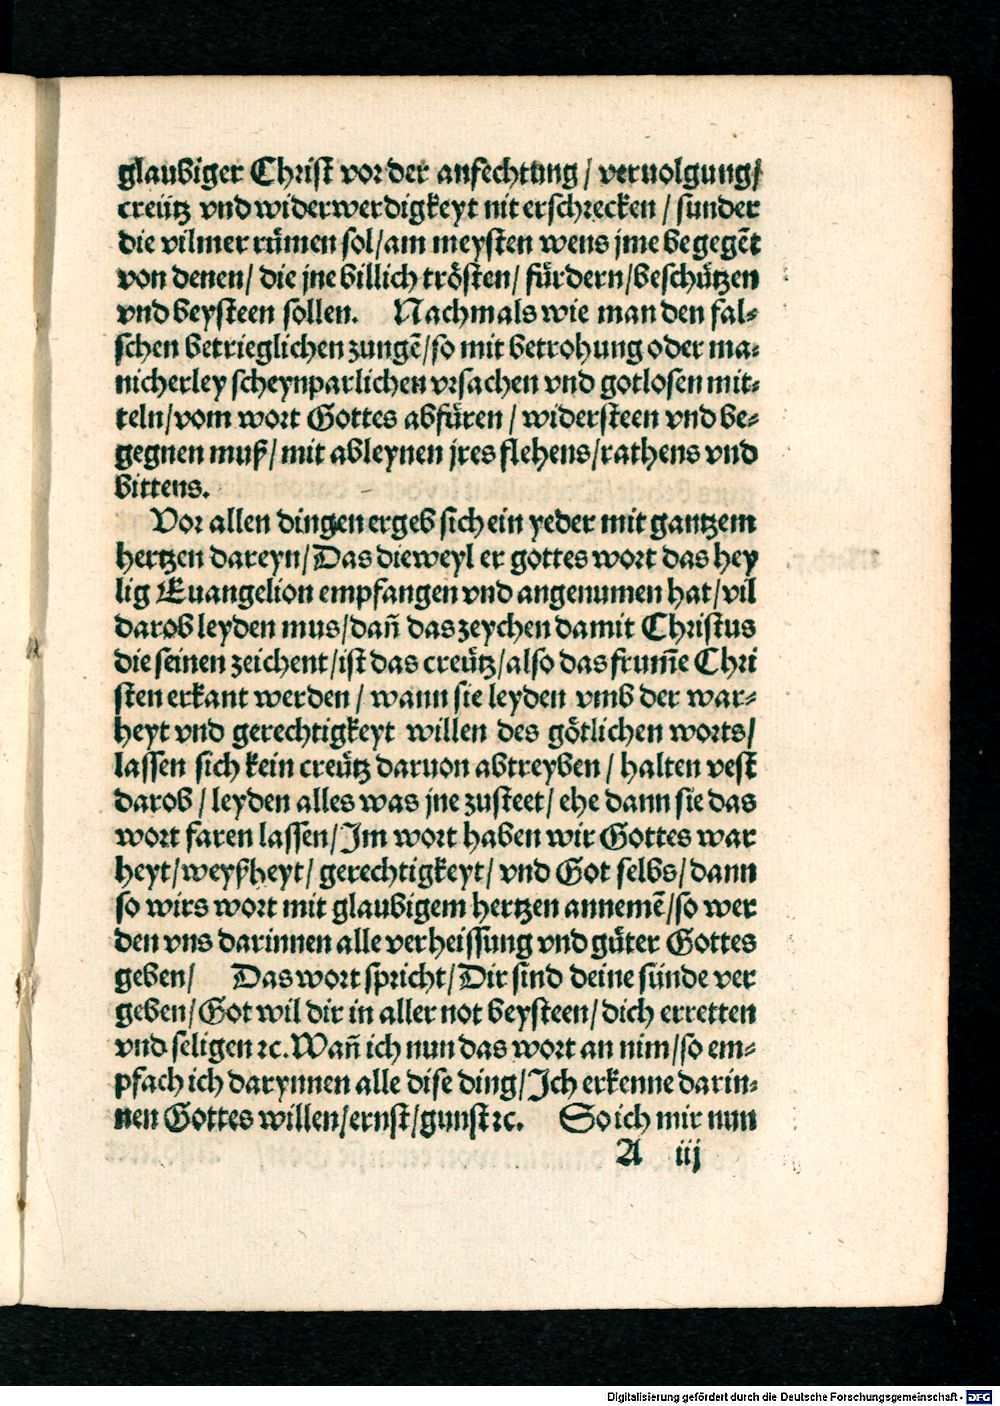 glaubiger Christ vor der anfechtung / veruolgung /
creütz vnd widerwerdigkeyt nit erschrecken / sunder
die vilmer růmen sol / am meysten wens jme begegẽt
von denen / die jne billich trösten / fürdern / beschützen
vnd beysteen sollen. Nachmals wie man den fal⸗
schen betrieglichen zungẽ / so mit betrohung oder ma⸗
nicherley scheynparlichen vrsachen vnd gotlosen mit⸗
teln / vom wort Gottes abfüren / widersteen vnd be⸗
gegnen muß / mit ableynen jres flehens / rathens vnd
bittens.
Vor allen dingen ergeb sich ein yeder mit gantzem
hertzen dareyn / Das dieweyl er gottes wort das hey
lig Euangelion empfangen vnd angenumen hat / vil
darob leyden mus / dañ das zeychen damit Christus
die seinen zeichent / ist das creütz / also das frum̃e Chri
sten erkant werden / wann sie leyden vmb der war⸗
heyt vnd gerechtigkeyt willen des götlichen worts /
lassen sich kein creütz daruon abtreyben / halten vest
darob / leyden alles was jne zusteet / ehe dann sie das
wort faren lassen / Im wort haben wir Gottes war
heyt / weyßheyt / gerechtigkeyt / vnd Got selbs / dann
so wirs wort mit glaubigem hertzen annemẽ / so wer
den vns darinnen alle verheissung vnd güter Gottes
geben / Das wort spricht / Dir sind deine sünde ver
geben / Got wil dir in aller not beysteen / dich erretten
vnd seligen ꝛc. Wañ ich nun das wort an nim / so em⸗
pfach ich darynnen alle dise ding / Ich erkenne darin⸗
nen Gottes willen / ernst / gunst ꝛc. So ich mir nun
A iij
Digitalisierung gefördert durch die Deutsche Forschungsgemeinschaft - DFG